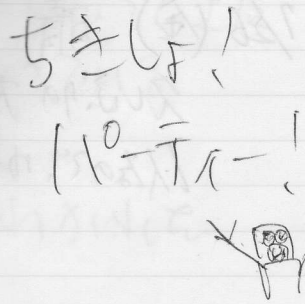 ちきしょ!
パーティー!